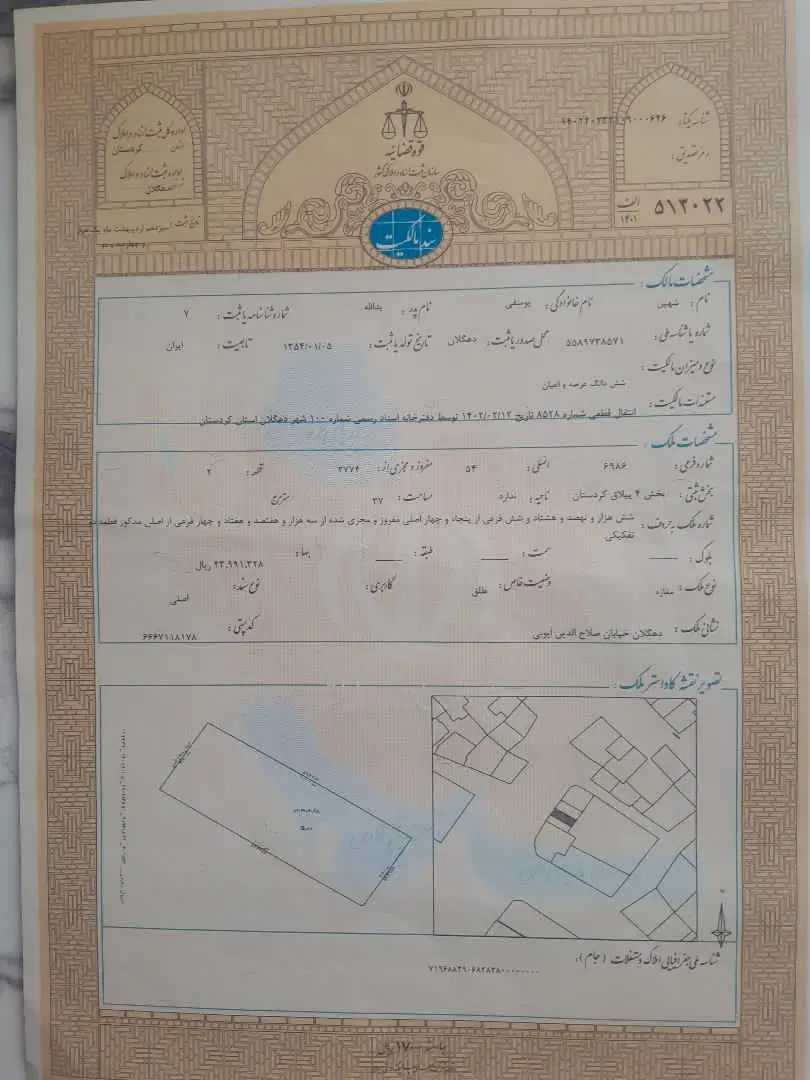 قوه قضائیه
سازمان ثبت اسناد و املاک کشور
سند مالکیت
اداره کل ثبت اسناد و املاک
استان: کردستان
اداره ثبت اسناد و املاک
دهگلان
تاریخ ثبت: سیزدهم اردیبهشت ماه یک هزار
و چهارصد و دو
شناسه یکتا:
رمز تصدیق:
۵۱۲۰۲۲ الف
۱۴۰۱
مشخصات مالک:
نام: شهین نام خانوادگی: یوسفی نام پدر: یدالله شماره شناسنامه یا ثبت: ۷
شماره یا شناسه ملی: ۵۵۸۹۷۳۸۵۷۱ محل صدور یا ثبت: دهگلان تاریخ تولد یا ثبت: ۱۳۵۴/۰۱/۰۵ تابعیت: ایران
نوع و میزان مالکیت:
شش دانگ عرصه و اعیان
مستندات مالکیت: انتقال قطعی شماره ۸۵۲۸ تاریخ ۱۴۰۲/۰۲/۱۲ توسط دفترخانه اسناد رسمی شماره ۱۰۰ شهر دهگلان استان کردستان
مشخصات ملک:
شماره فرعی: ۶۹۸۶ اصلی: ۵۴ مفروز و مجزی از: ۳۷۷۴ قطعه: ۲
بخش ثبتی: بخش ۴ ییلاق کردستان ناحیه: ندارد مساحت: ۳۷ مترمربع
شماره ملک به حروف: شش هزار و نهصد و هشتاد و شش فرعی از پنجاه و چهار اصلی مفروز و مجزی شده از سه هزار و هفتصد و هفتاد و چهار فرعی از اصلی مذکور قطعه دو
تفکیکی.
بلوک: سمت: طبقه: بها: ۲۳،۹۹۱،۳۲۸ ریال
نوع ملک: مغازه وضعیت خاص: طلق کاربری: نوع سند: اصلی
نشانی ملک: دهگلان خیابان صلاح الدین ایوبی کدپستی: ۶۶۶۷۱۱۸۱۷۸
تصویر نقشه کاداستر ملک:
شناسه ملی جغرافیایی املاک و مستغلات (جام):